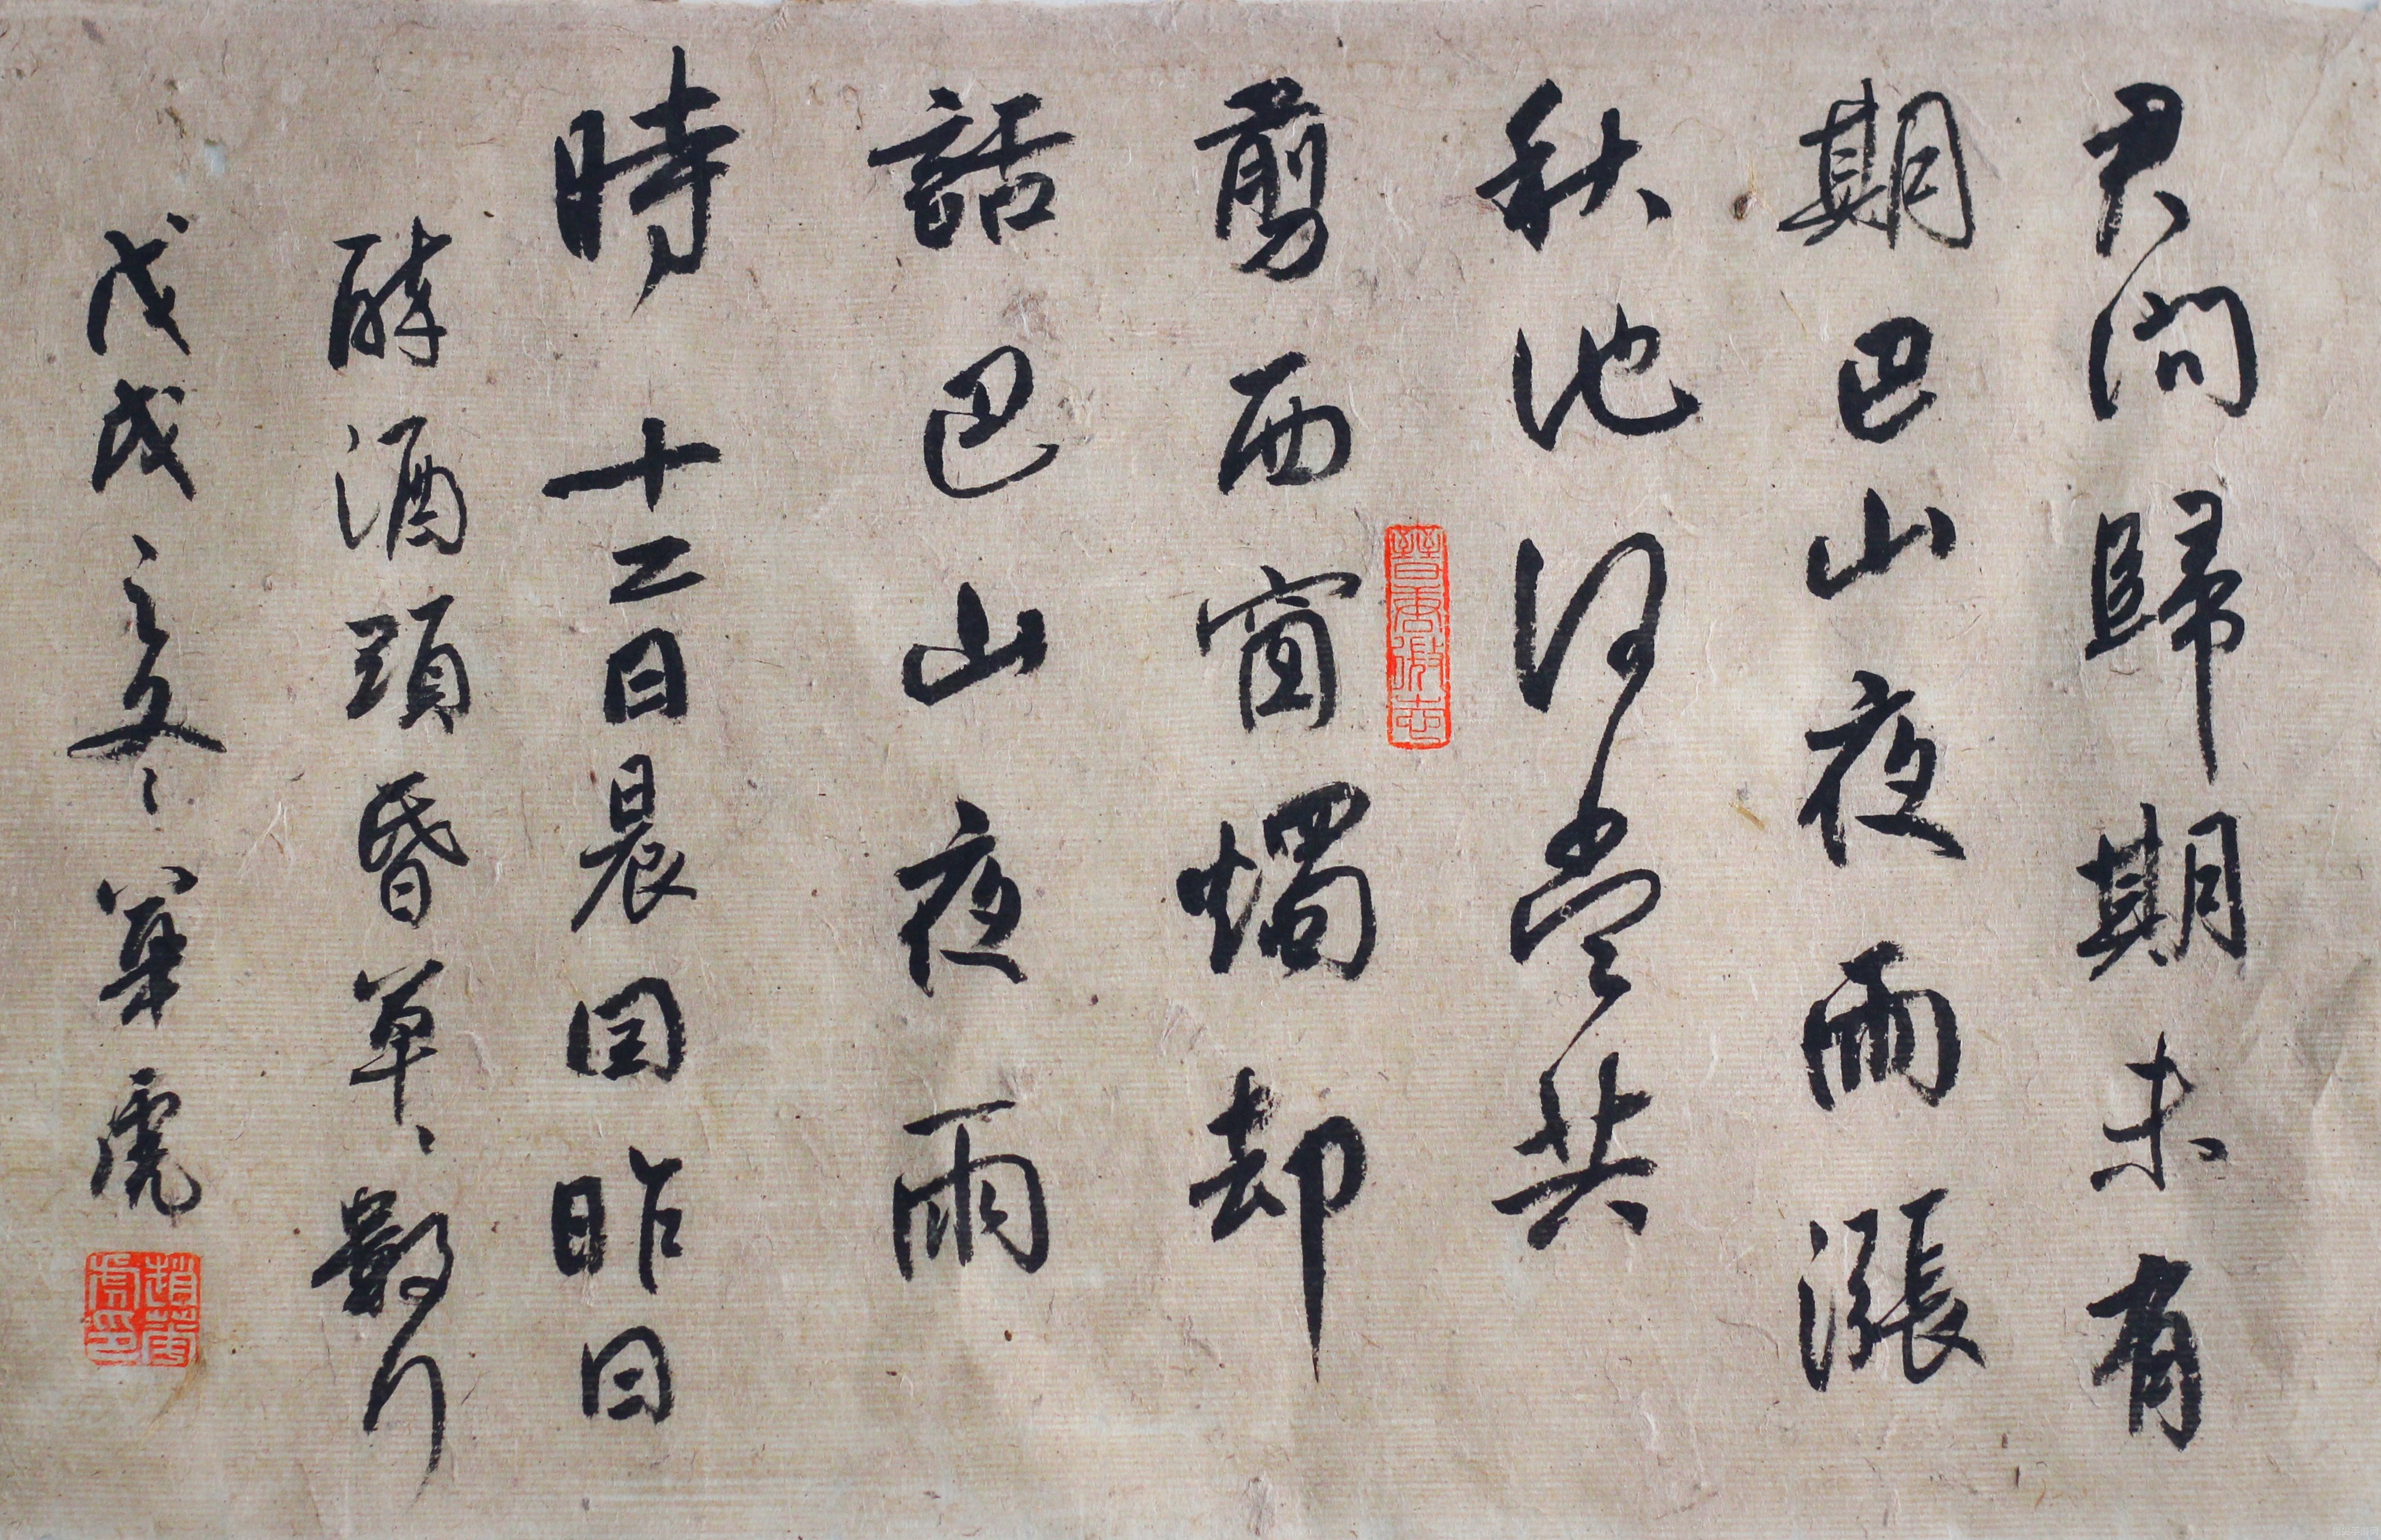 君问歸期未有
期巴山夜雨漲
秋池何當共
剪西窗燭却
話巴山夜雨
時 十二日晨因昨日
醉酒頭昏草草數行
戊戌之冬 華虎
趙華虎印